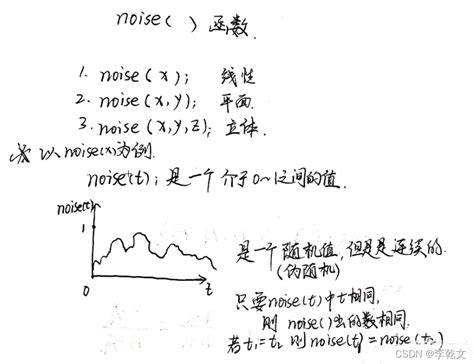 noise( )函数.
1. noise(x); 线性
2. noise(x,y); 平面.
3. noise(x,y,z); 立体.
以noise(x)为例.
noise(t); 是一个介于0~1之间的值.
noise(t)
1
0
t
是一个随机值,但是是连续的.
(伪随机)
只要noise(t)中t相同,
则noise()出的数相同.
若t₁=t₂ 则noise(t₁)=noise(t₂)
CSDN @李乾文